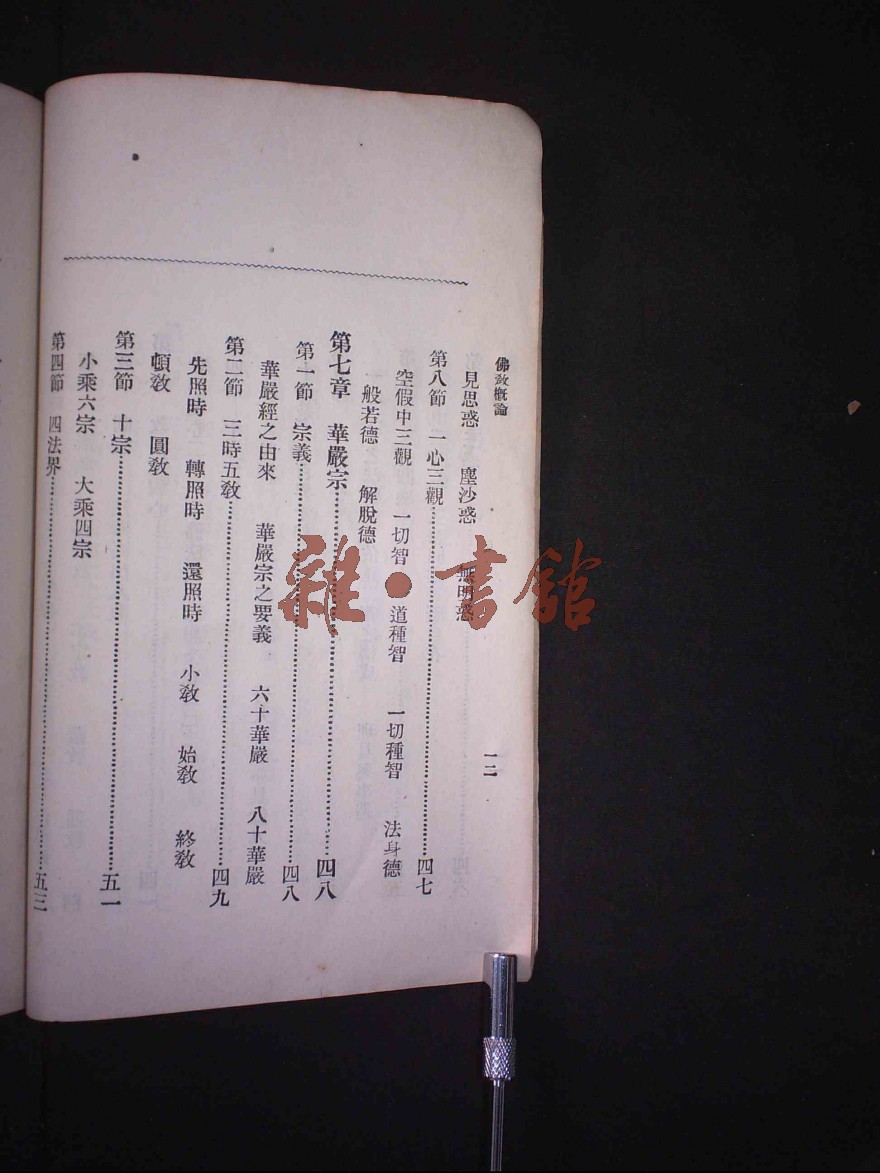 佛敎概論
一二
見思惑 塵沙惑 無明惑
第八節 一心三觀……四七
空假中三觀 一切智 道種智 一切種智 法身德
般若德 解脫德
第七章 華嚴宗……四八
第一節 宗義……四八
華嚴經之由來 華嚴宗之要義 六十華嚴 八十華嚴
第二節 三時五敎……四九
先照時 轉照時 還照時 小敎 始敎 終敎
頓敎 圓敎
第三節 十宗……五一
小乘六宗 大乘四宗
第四節 四法界……五三
雜·書館